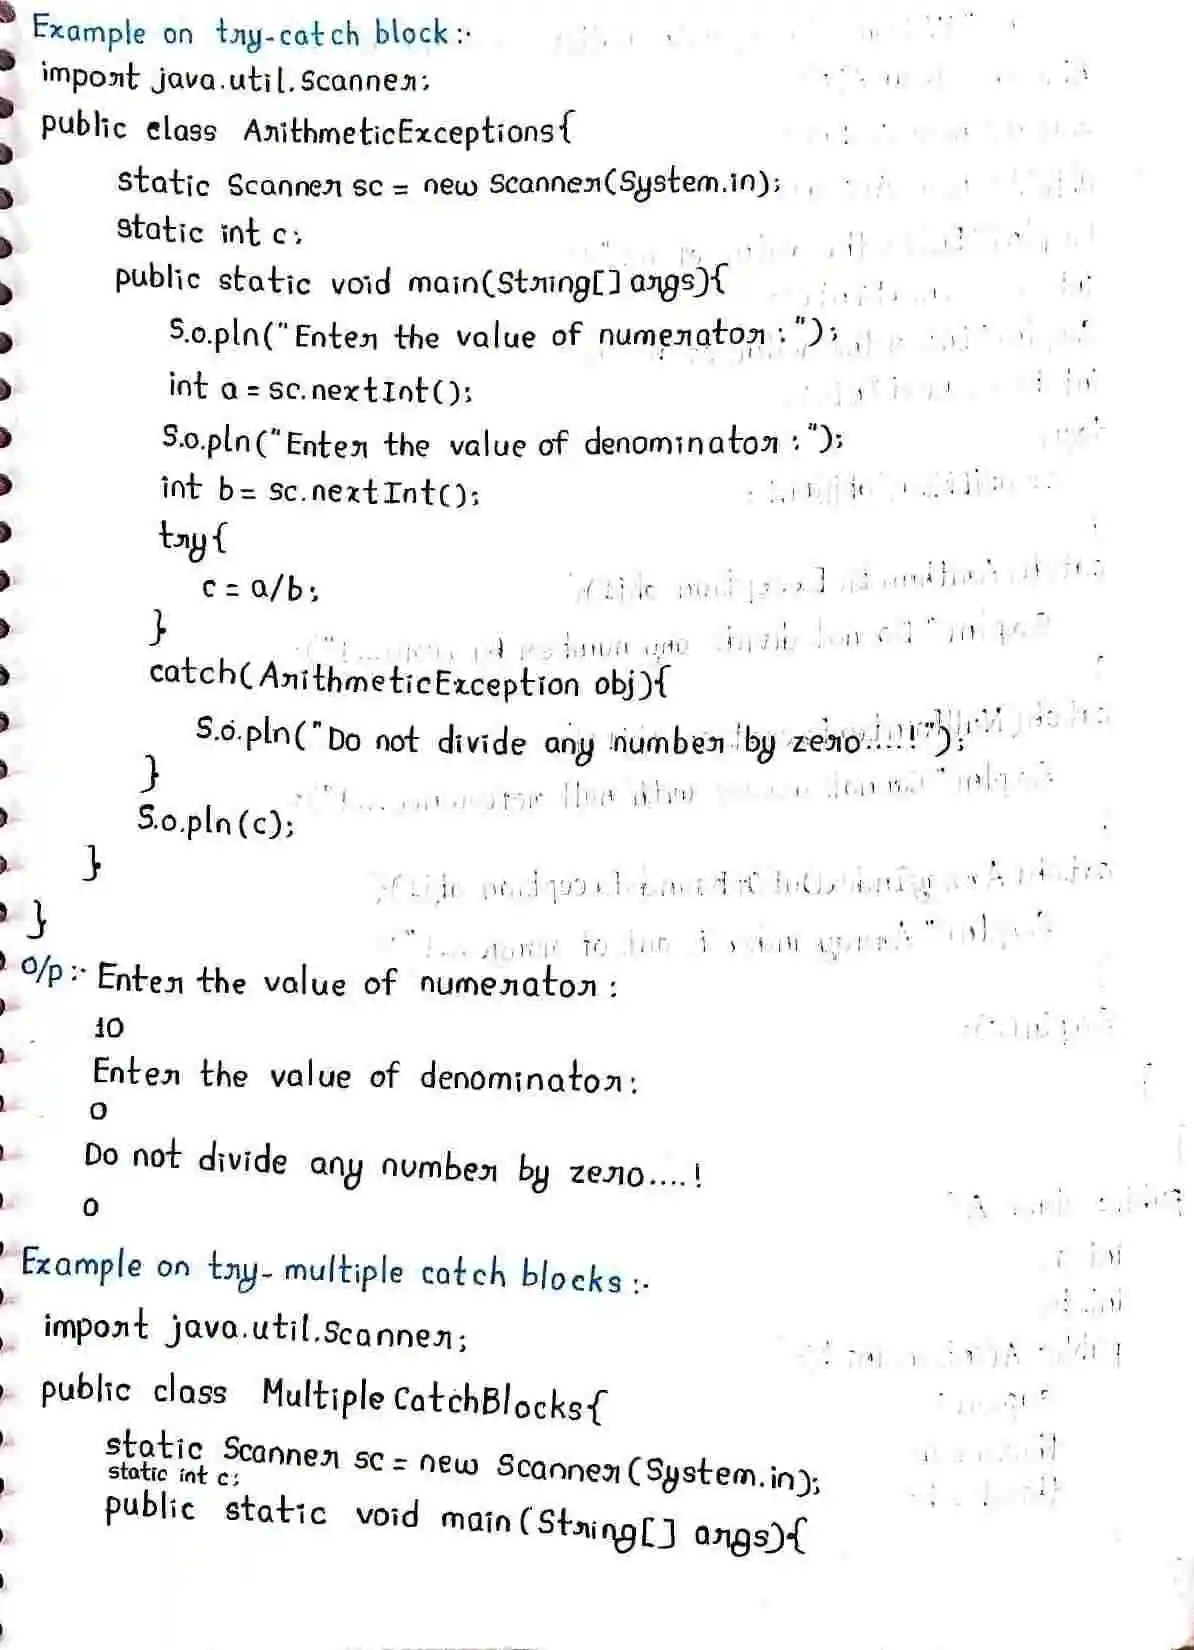 Example on try-catch block:-
import java.util.Scanner;
public class ArithmeticExceptions{
static Scanner sc = new Scanner(System.in);
static int c;
public static void main(String[] args){
S.o.pln("Enter the value of numerator:");
int a = sc.nextInt();
S.o.pln("Enter the value of denominator:");
int b = sc.nextInt();
try{
c = a/b;
}
catch(ArithmeticException obj){
S.o.pln("Do not divide any number by zero....!");
}
S.o.pln(c);
}
}
o/p:- Enter the value of numerator:
10
Enter the value of denominator:
0
Do not divide any number by zero....!
0
Example on try- multiple catch blocks:-
import java.util.Scanner;
public class MultipleCatchBlocks{
static Scanner sc = new Scanner(System.in);
static int c;
public static void main(String[] args){